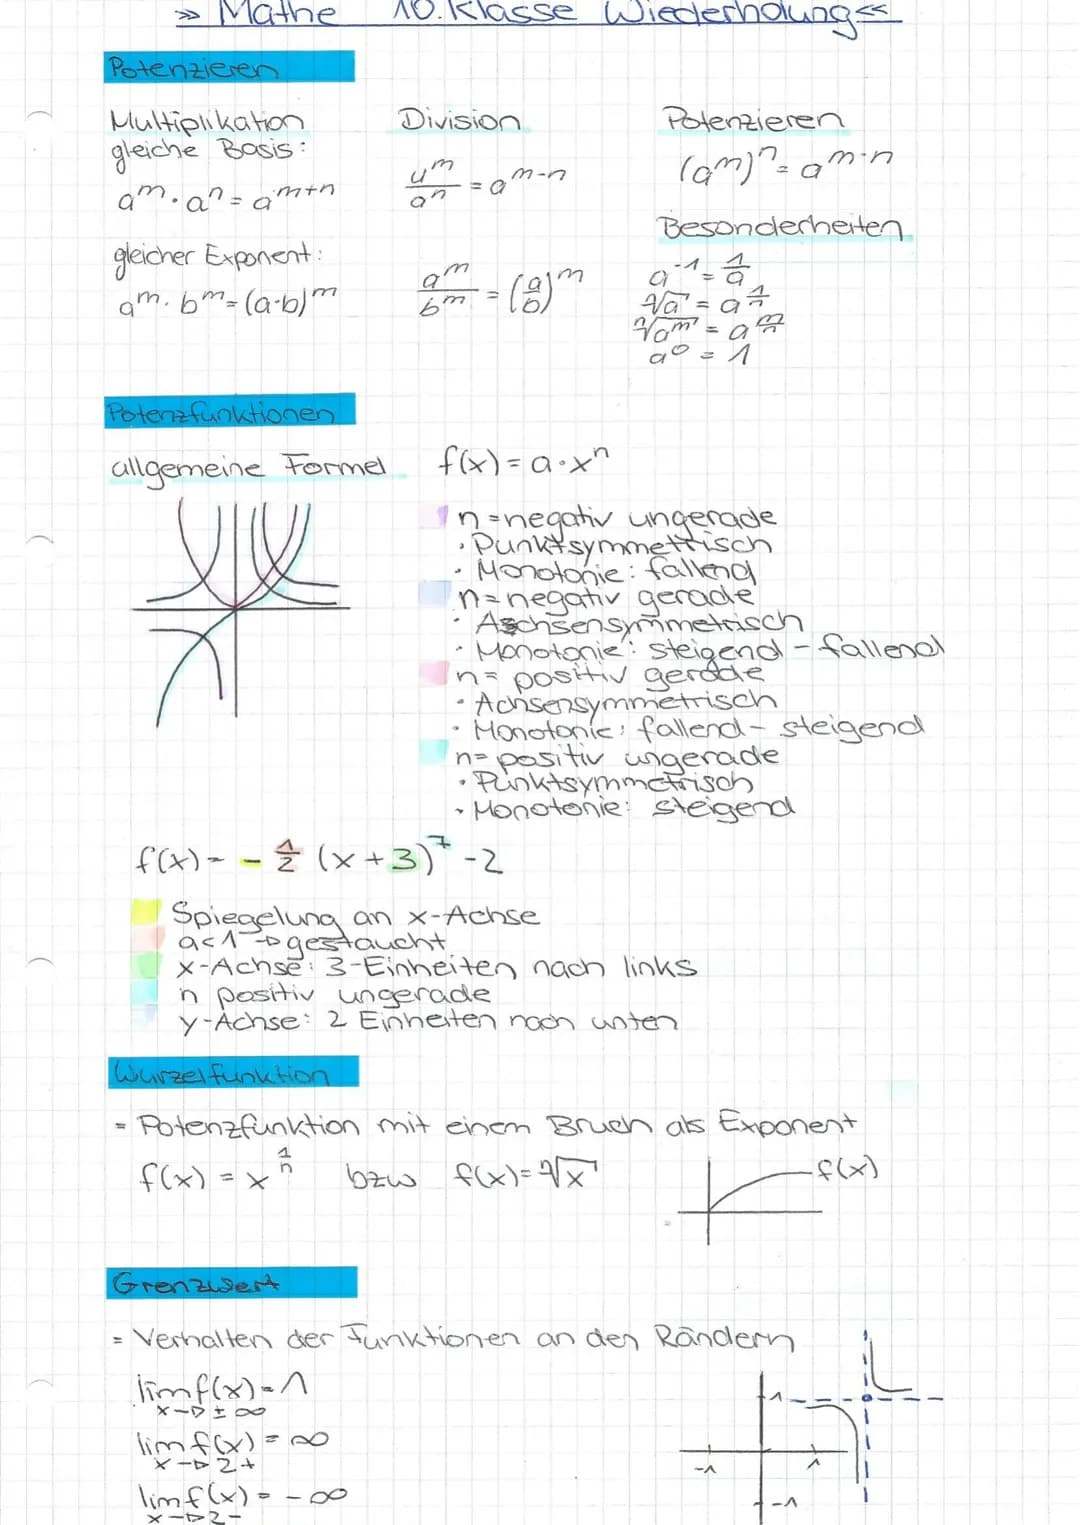 » Mathe 10. Klasse Wiederholung «
Potenzieren
Multiplikation
gleiche Basis:
a^m · a^n = a^m+n
gleicher Exponent:
a^m · b^m = (a·b)^m
Division
u^m/a^n = a^m-n
a^m/b^m = (a/b)^m
Potenzieren
(a^m)^n = a^m·n
Besonderheiten
a^-1 = 1/a
ⁿ√a = a^1/n
ⁿ√a^m = a^m/n
a^0 = 1
Potenzfunktionen
allgemeine Formel f(x) = a · x^n
n = negativ ungerade
· Punktsymmetrisch
· Monotonie: fallend
n = negativ gerade
· Aschsensymmetrisch
· Monotonie: steigend - fallend
n = positiv gerade
· Achsensymmetrisch
· Monotonie: fallend - steigend
n = positiv ungerade
· Punktsymmetrisch
· Monotonie: steigend
f(x) = - 1/2 (x + 3)^7 - 2
Spiegelung an x-Achse
a<1 → gestaucht
x-Achse: 3-Einheiten nach links
n positiv ungerade
y-Achse: 2 Einheiten nach unten
Wurzelfunktion
= Potenzfunktion mit einem Bruch als Exponent
f(x) = x^1/n bzw f(x) = ⁿ√x
f(x)
Grenzwert
= Verhalten der Funktionen an den Rändern
lim f(x) = 1
x → ± ∞
lim f(x) = ∞
x → 2+
lim f(x) = - ∞
x → 2-
1
-1
1
-1